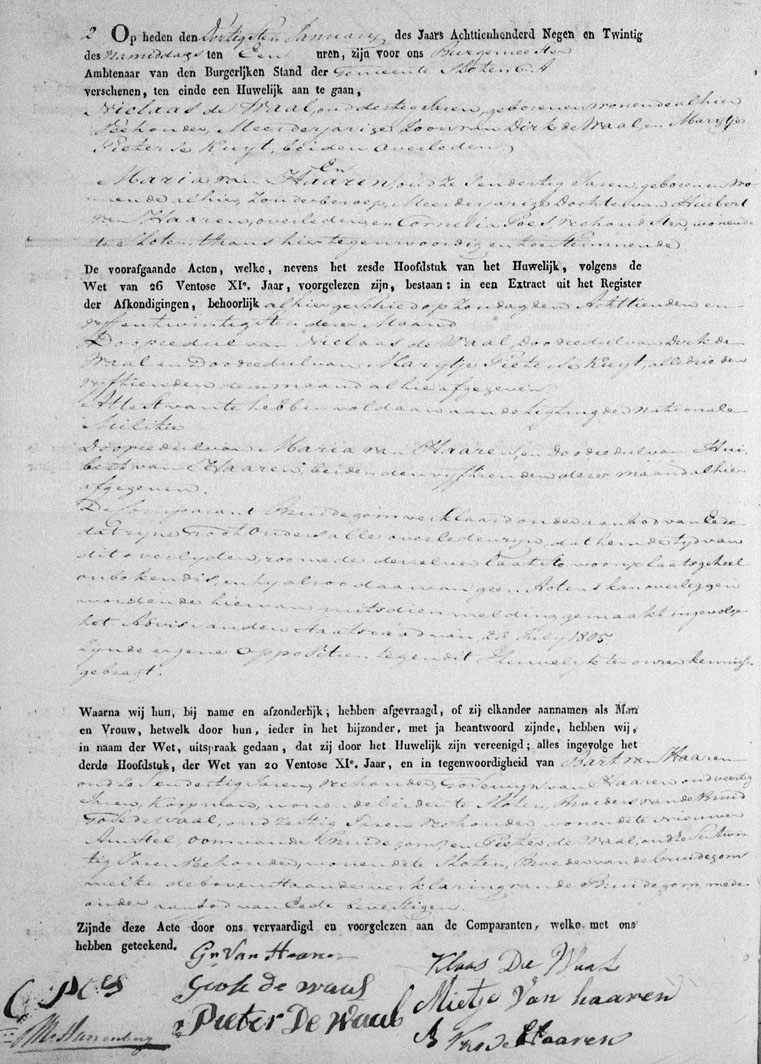 2 Op heden den Dertigsten January des Jaars Achttienhonderd Negen en Twintig
des Namiddags ten Een uren, zijn voor ons Burgemeester
Ambtenaar van den Burgerlijken Stand der Gemeente Sloten C.A
verschenen, ten einde een Huwelijk aan te gaan,
Niclaas de Waal, oud Jaren, geboren en wonende alhier
Veehouder, Meerderjarige Zoon van Dirk de Waal, en Marytje
Pieterse Kuyt, beiden overleden
En
Maria van Haaren, oud Zes en dertig Jaren, geboren en wo-
nende alhier, Zonder beroep, Meerderjarige Dochter van Huibert
van Haaren, overleden en Cornelia Poes veehoudster, wonende
te Sloten, thans hier tegenwoordig en toestemmende
De voorafgaande Acten, welke, nevens het zesde Hoofdstuk van het Huwelijk, volgens de
Wet van 26 Ventose XIe. Jaar, voorgelezen zijn, bestaan: in een Extract uit het Register
der Afkondigingen, behoorlijk alhier geschied op Zondag den Achttienden en
vyf en twintigsten dezer Maand
Doopcedul van Niclaas de Waal, Doodcedul van Dirk de
Waal en Doodcedul van Marytje Pieterse Kuyt, alle drie den
vyftienden dezer maand alhier afgegeven
Attest van te hebben voldaan aan de Ligting der Nationale
Militie
Doopcedul van Maria van Haaren, en doodcedul van Hui-
bert van Haaren, beiden den vyftienden dezer maand alhier
afgegeven.
De Comparant Bruidegom verklaard onder aanbod van Eede
dat zyne Grootouders alle overleden zyn, dat hem de tyd van
dit overlyden, zoo mede derzelver laatste woonplaats geheel
onbekend is, en hy alzoo daarvan geen Actens kan overleggen
wordende hiervan mitsdien melding gemaakt ingevolge
het Advis van den Staatsraad van 23 July 1805
Zynde er gene Oppositien tegen dit Huwelijk ter onzer kennis
gebragt.
Waarna wij hun, bij name en afzonderlijk, hebben afgevraagd, of zij elkander aannamen als Man
en Vrouw, hetwelk door hun, ieder in het bijzonder, met ja beantwoord zijnde, hebben wij,
in naam der Wet, uitspraak gedaan, dat zij door het Huwelijk zijn vereenigd; alles ingevolge het
derde Hoofdstuk, der Wet van 20 Ventose XIe. Jaar, en in tegenwoordigheid van Bart van Haaren
oud Zes en dertig Jaren, veehouder, van Haaren oud veertig
Jaren, Koopman, wonende beiden te Sloten, Broeders van de Bruid
Gose de Waal, oud Zestig Jaren veehouder wonende te Nieuwer
Amstel, oom van de Bruidegom, en Pieter de Waal, oud
tig Jaren Veehouder, wonende te Sloten, Broeder van de Bruidegom
welke de bovenstaande verklaring van de Bruidegom mede
onder aanbod van Eede bevestigen.
Zijnde deze Acte door ons vervaardigd en voorgelezen aan de Comparanten, welke met ons
hebben geteekend.
Gn Van Haaren
Klaas De Waal
C Poes
Goose de Waal
Mietje Van haaren
Pieter De Waal
Haaren